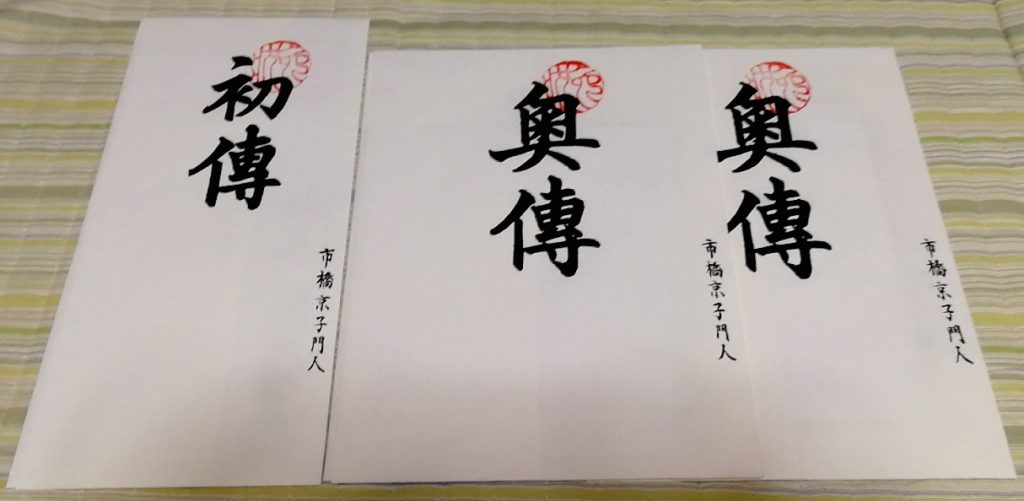 初傳
市橋京子門人
奥傳
市橋京子門人
奥傳
市橋京子門人